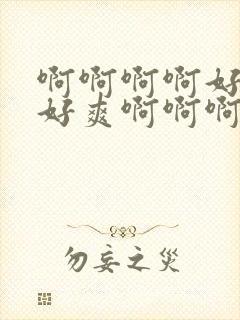 啊啊啊啊好
好爽啊啊啊
勿妄之災